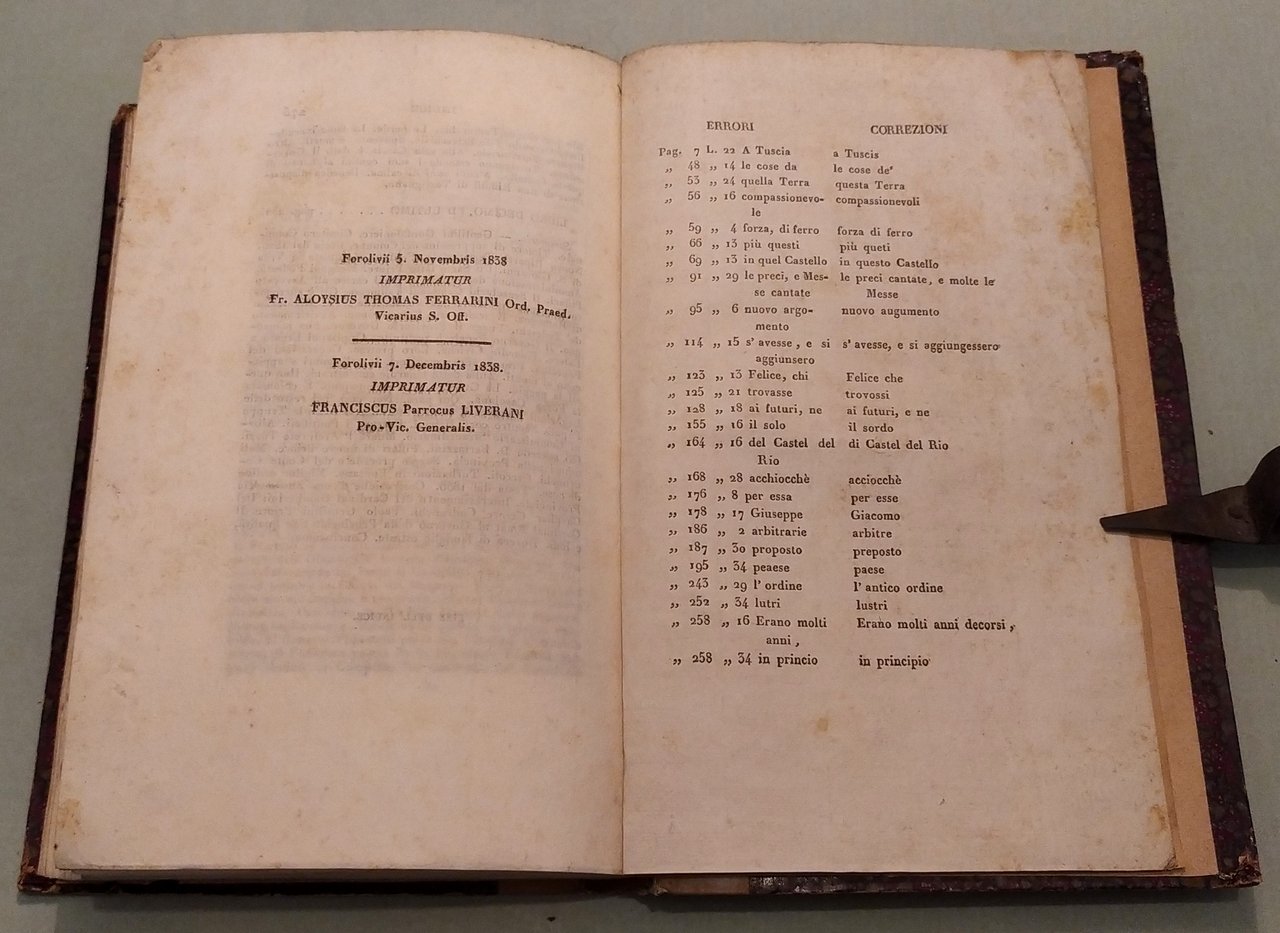 Forolivii 5. Novembris 1838
IMPRIMATUR
Fr. ALOYSIUS THOMAS FERRARINI Ord. Praed.
Vicarius S. Off.
Forolivii 7. Decembris 1838.
IMPRIMATUR
FRANCISCUS Parrocus LIVERANI
Pro-Vic. Generalis.
ERRORI CORREZIONI
Pag. 7 L. 22 A Tuscia a Tuscis
„ 48 „ 14 le cose da le cose de'
„ 53 „ 24 quella Terra questa Terra
„ 56 „ 16 compassionevo- compassionevoli
le
„ 59 „ 4 forza, di ferro forza di ferro
„ 66 „ 13 più questi più queti
„ 69 „ 13 in quel Castello in questo Castello
„ 91 „ 29 le preci, e Mes- le preci cantate, e molte le
se cantate Messe
„ 95 „ 6 nuovo argo- nuovo augumento
mento
„ 114 „ 15 s' avesse, e si s' avesse, e si aggiungessero
aggiunsero
„ 123 „ 13 Felice, chi Felice che
„ 125 „ 21 trovasse trovossi
„ 128 „ 18 ai futuri, ne ai futuri, e ne
„ 155 „ 16 il solo il sordo
„ 164 „ 16 del Castel del di Castel del Rio
Rio
„ 168 „ 28 acchiocchè acciocchè
„ 176 „ 8 per essa per esse
„ 178 „ 17 Giuseppe Giacomo
„ 186 „ 2 arbitrarie arbitre
„ 187 „ 30 proposto preposto
„ 195 „ 34 peaese paese
„ 243 „ 29 l' ordine l' antico ordine
„ 252 „ 34 lutri lustri
„ 258 „ 16 Erano molti Erano molti anni decorsi,
anni,
„ 258 „ 34 in princio in principio